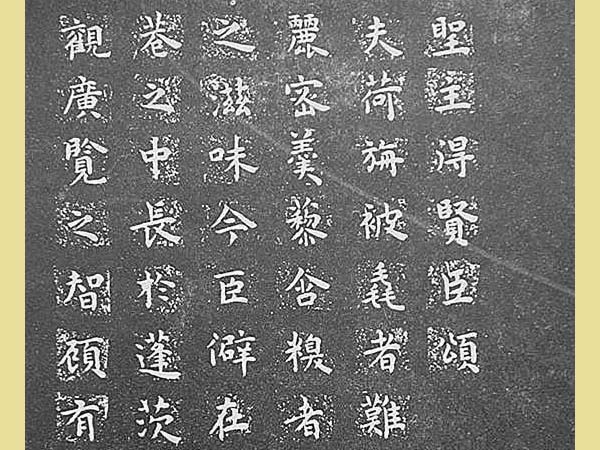 聖主得賢臣頌
夫荷旃被毳者難
麗密羮藜含糗者
之滋味今臣僻在
巷之中長於蓬茨
觀廣覽之智顧有